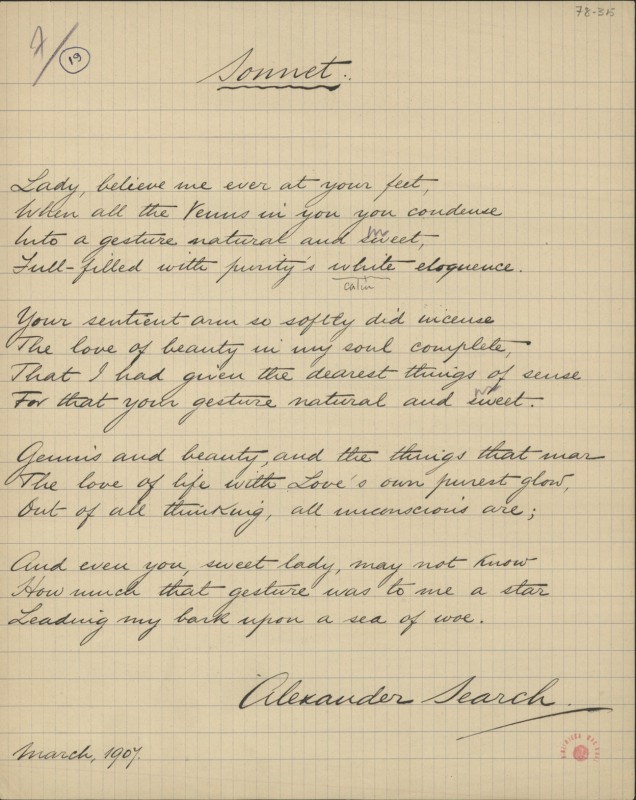 78-35
7/
19
Sonnet.
Lady, believe me ever at your feet,
When all the Venus in you you condense
Into a gesture natural and sweet,
Full-filled with purity's white eloquence.
calm
Your sentient arm so softly did incense
The love of beauty in my soul complete,
That I had given the dearest things of sense
For that your gesture natural and sweet.
Genius and beauty, and the things that mar
The love of life with Love's own purest glow,
Out of all thinking, all unconscious are;
And even you, sweet lady, may not know
How much that gesture was to me a star
Leading my bark upon a sea of woe.
Alexander Search.
March, 1907.